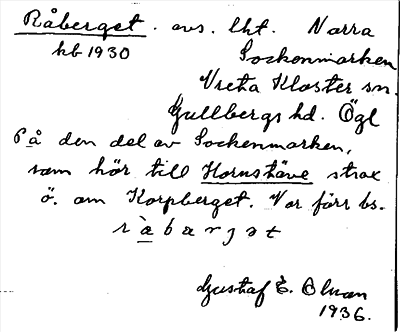 Råberget. avs. lht. Norra
kb 1930 Sockenmarken
Vreta Kloster sn.
Gullbergs hd. Ögl
På den del av Sockenmarken,
som hör till Hornstäve strax
ö. om Korpberget. Var förr bs.
råbarjət
Gustaf E. Olsson
1936.